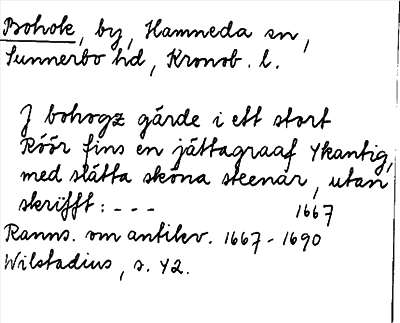 Bohok, by, Hamneda sn,
Sunnerbo hd, Kronob. l.
J bohogz gärde i ett stort
Röör fins en jättagraaf 4kantig,
med slätta sköna steenar, utan
skrifft: - - - 1667
Ranns. om antikv. 1667-1690
Wilstadius, s. 42.